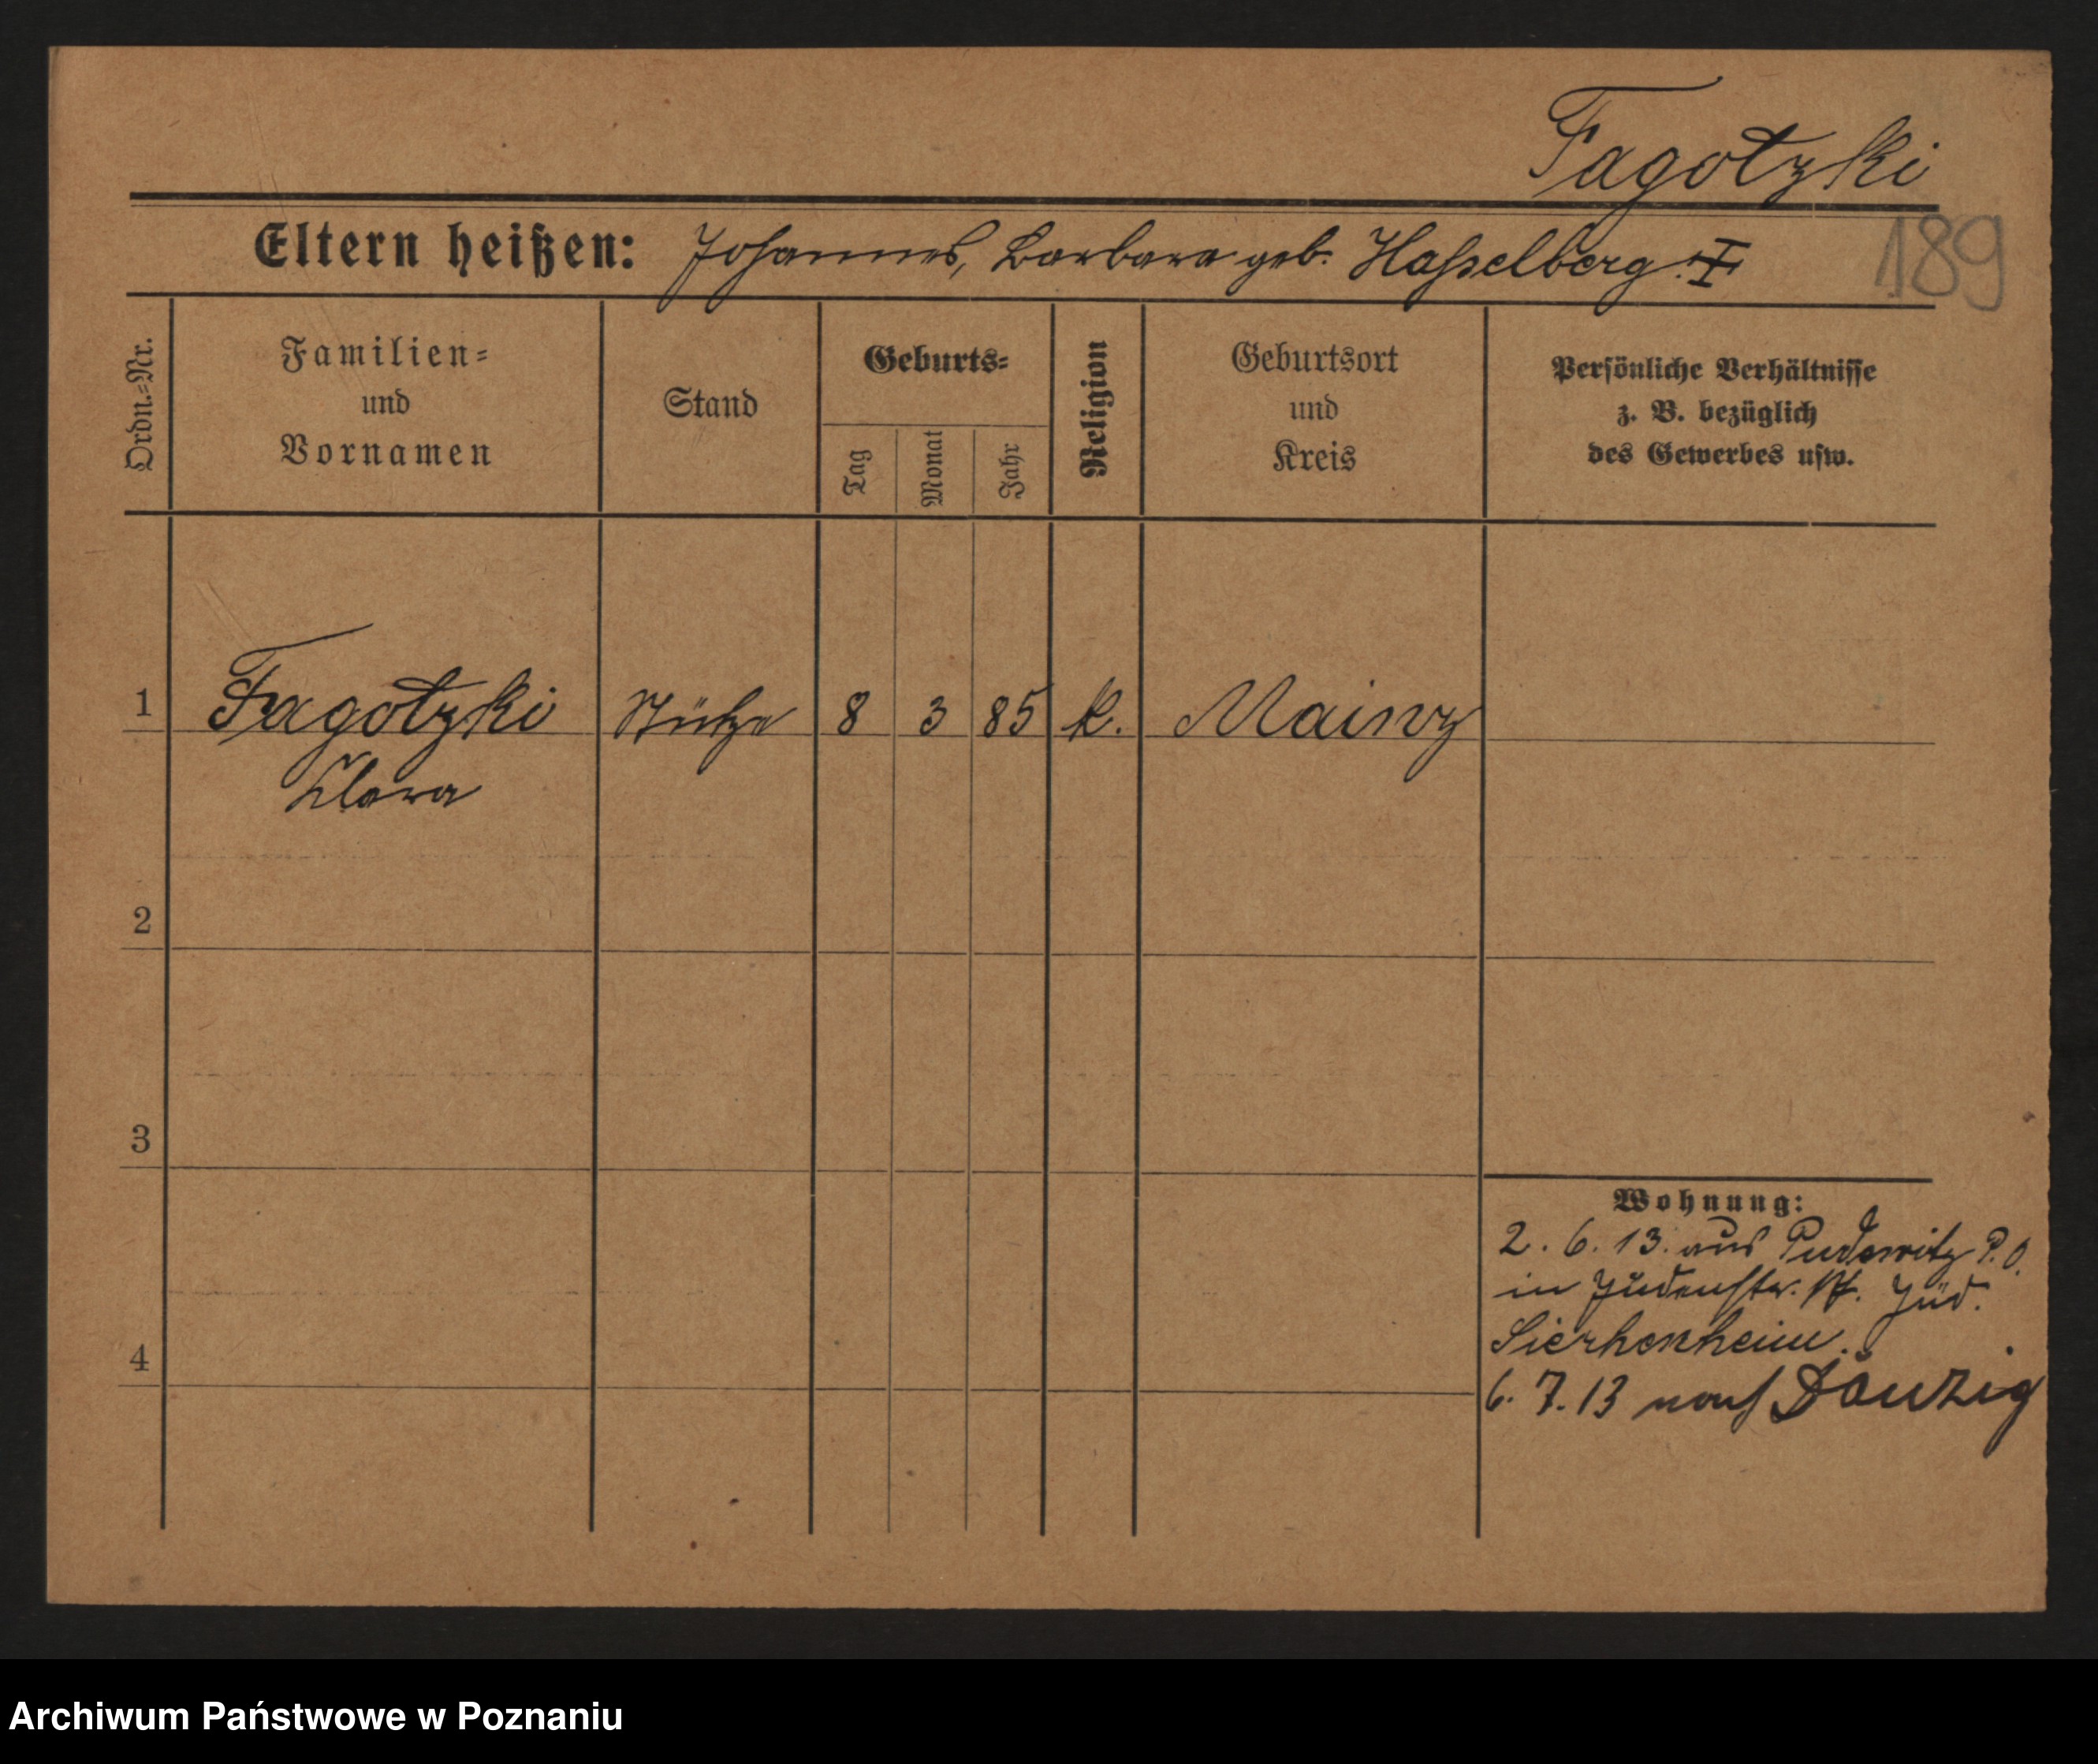 Fagotzki
189
Eltern heißen: Johannes, Barbara geb. Haßelberg.
Ordn.=Nr.
Familien=
und
Vornamen
Stand
Geburts=
Tag
Monat
Jahr
Religion
Geburtsort
und
Kreis
Persönliche Verhältnisse
z. B. bezüglich
des Gewerbes usw.
1 Fagotzki Stütze 8 3 85 k. Mainz
Klara
2
3
4
Wohnung:
2. 6. 13. aus Pudewitz P. O.
in Judenstr. Jüd.
Siechenheim.
6. 7. 13 nach Danzig
Archiwum Państwowe w Poznaniu